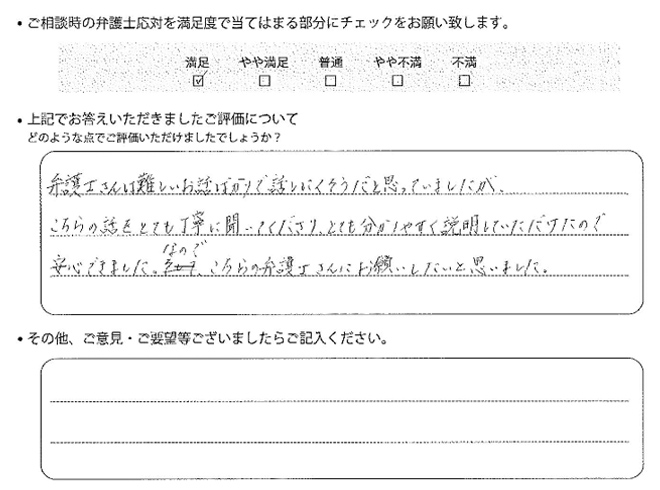 ・ご相談時の弁護士応対を満足度で当てはまる部分にチェックをお願い致します。
満足 やや満足 普通 やや不満 不満
☑ □ □ □ □
・上記でお答えいただきましたご評価について
どのような点でご評価いただけましたでしょうか?
弁護士さんは難しいお話ばかりで話しにくそうだと思っていましたが、
こちらの話をとても丁寧に聞いてくださり、とても分かりやすく説明していただけたので
なので
安心できました。、こちらの弁護士さんにお願いしたいと思いました。
・その他、ご意見・ご要望等ございましたらご記入ください。